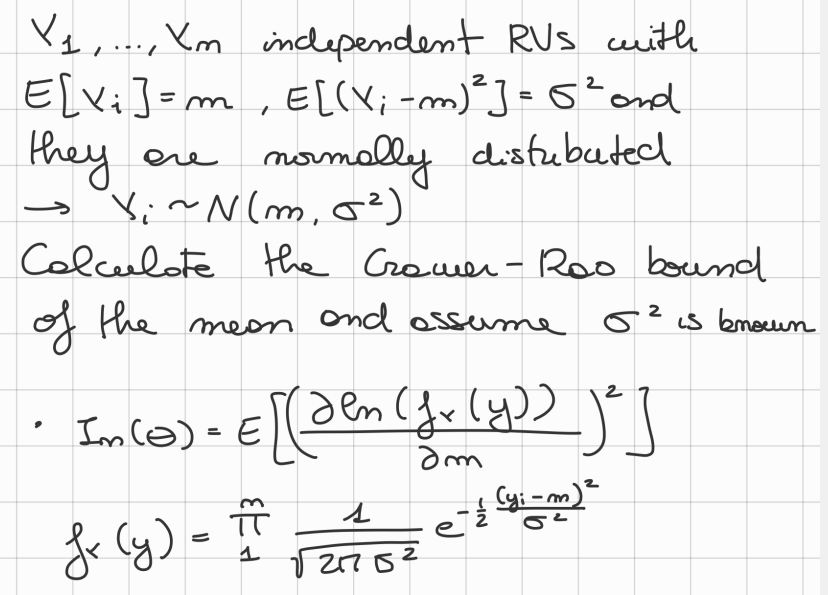 Y₁, ..., Yₙ independent RVs with
E[Yᵢ] = m, E[(Yᵢ-m)²] = σ² and
they are normally distributed
→ Yᵢ ~ N(m, σ²)
Calculate the Cramer-Rao bound
of the mean and assume σ² is known
· Iₙ(θ) = E[(∂ln(fᵧ(y))/∂m)²]
fᵧ(y) = ∏₁ⁿ 1/√(2πσ²) e^(-1/2 (yᵢ-m)²/σ²)